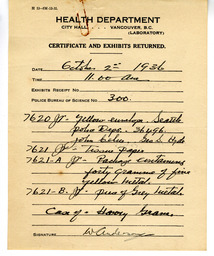 HEALTH DEPARTMENT
CITY HALL VANCOUVER, B.C.
(LABORATORY)
CERTIFICATE AND EXHIBITS RETURNED.
DATE October 2nd 1936
TIME 11.00 am
EXHIBITS RECEIPT NO.
POLICE BUREAU OF SCIENCE NO. 300.
7620 Yellow envelope Seattle
Police Dept. 36496
John
7621 Tissue paper
7621-A Package containing
forty Grammes of fine
yellow metal
7621-B. piece of Grey metal
Case of Harry
SIGNATURE